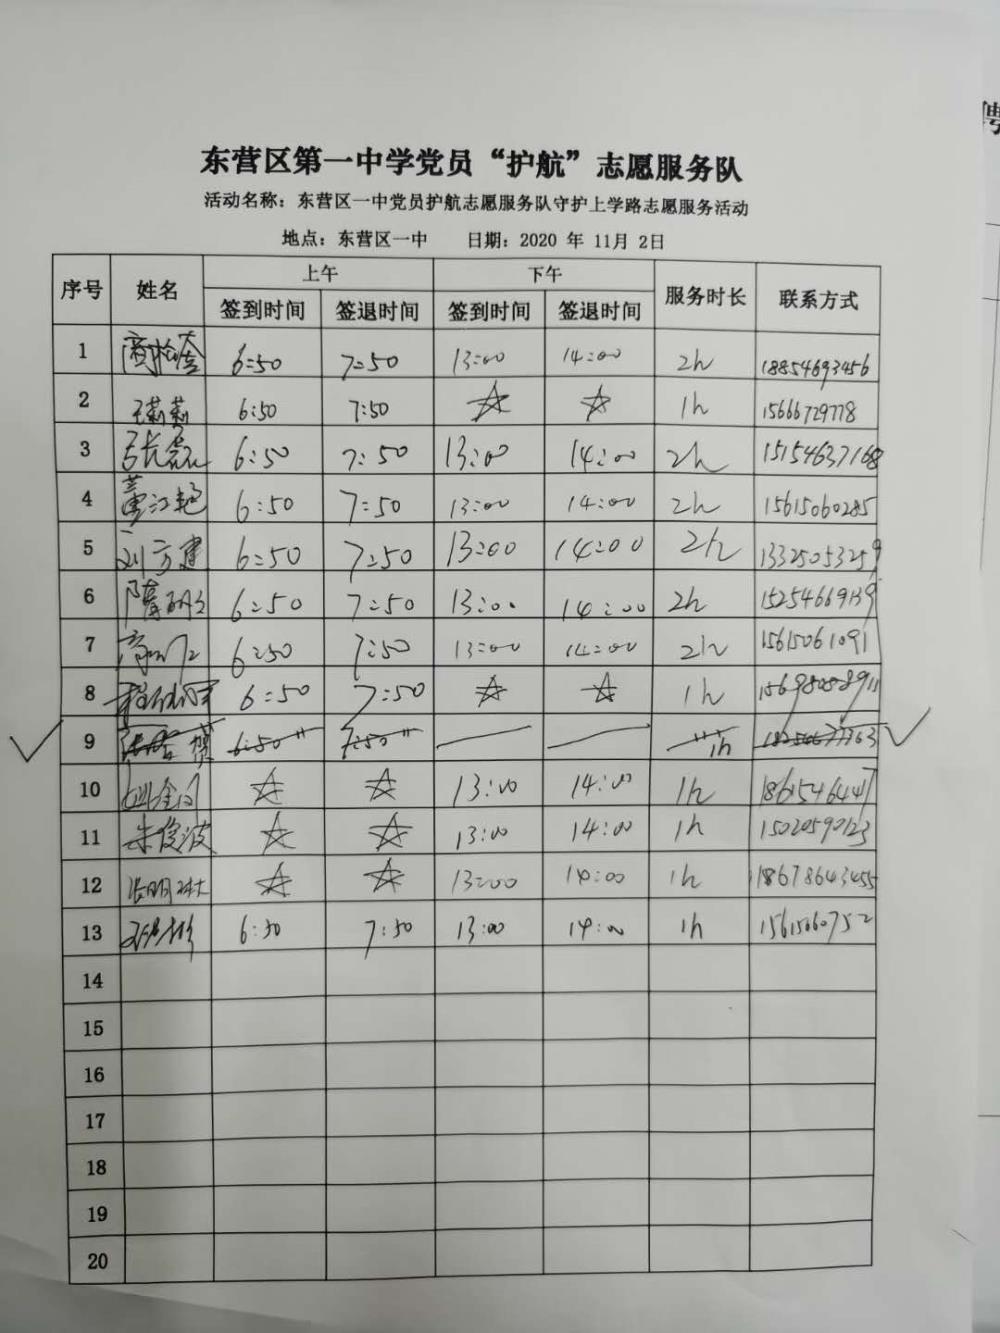 聘
东营区第一中学党员“护航”志愿服务队
活动名称：东营区一中党员护航志愿服务队守护上学路志愿服务活动
地点：东营区一中 日期：2020 年 11月 2日
序号 姓名 上午 下午 服务时长 联系方式
签到时间 签退时间 签到时间 签退时间
1 6:50 7:50 13:00 14:00 2h 18854693456
2 王莉莉 6:50 7:50 ☆ ☆ 1h 15666729778
3 6:50 7:50 13:00 14:00 2h 15154637168
4 董江艳 6:50 7:50 13:00 14:00 2h 15615060285
5 刘方建 6:50 7:50 13:00 14:00 2h 13325053259
6 6:50 7:50 13:00 14:00 2h 15254669139
7 6:50 7:50 13:00 14:00 2h 15615061091
8 6:50 7:50 ☆ ☆ 1h
9 6:50 7:50 1h
10 ☆ ☆ 13:00 14:00 1h
11 朱俊波 ☆ ☆ 13:00 14:00 1h 15020590123
12 ☆ ☆ 13:00 14:00 1h 18678643455
13 6:50 7:50 13:00 14:00 1h 15615060752
14
15
16
17
18
19
20